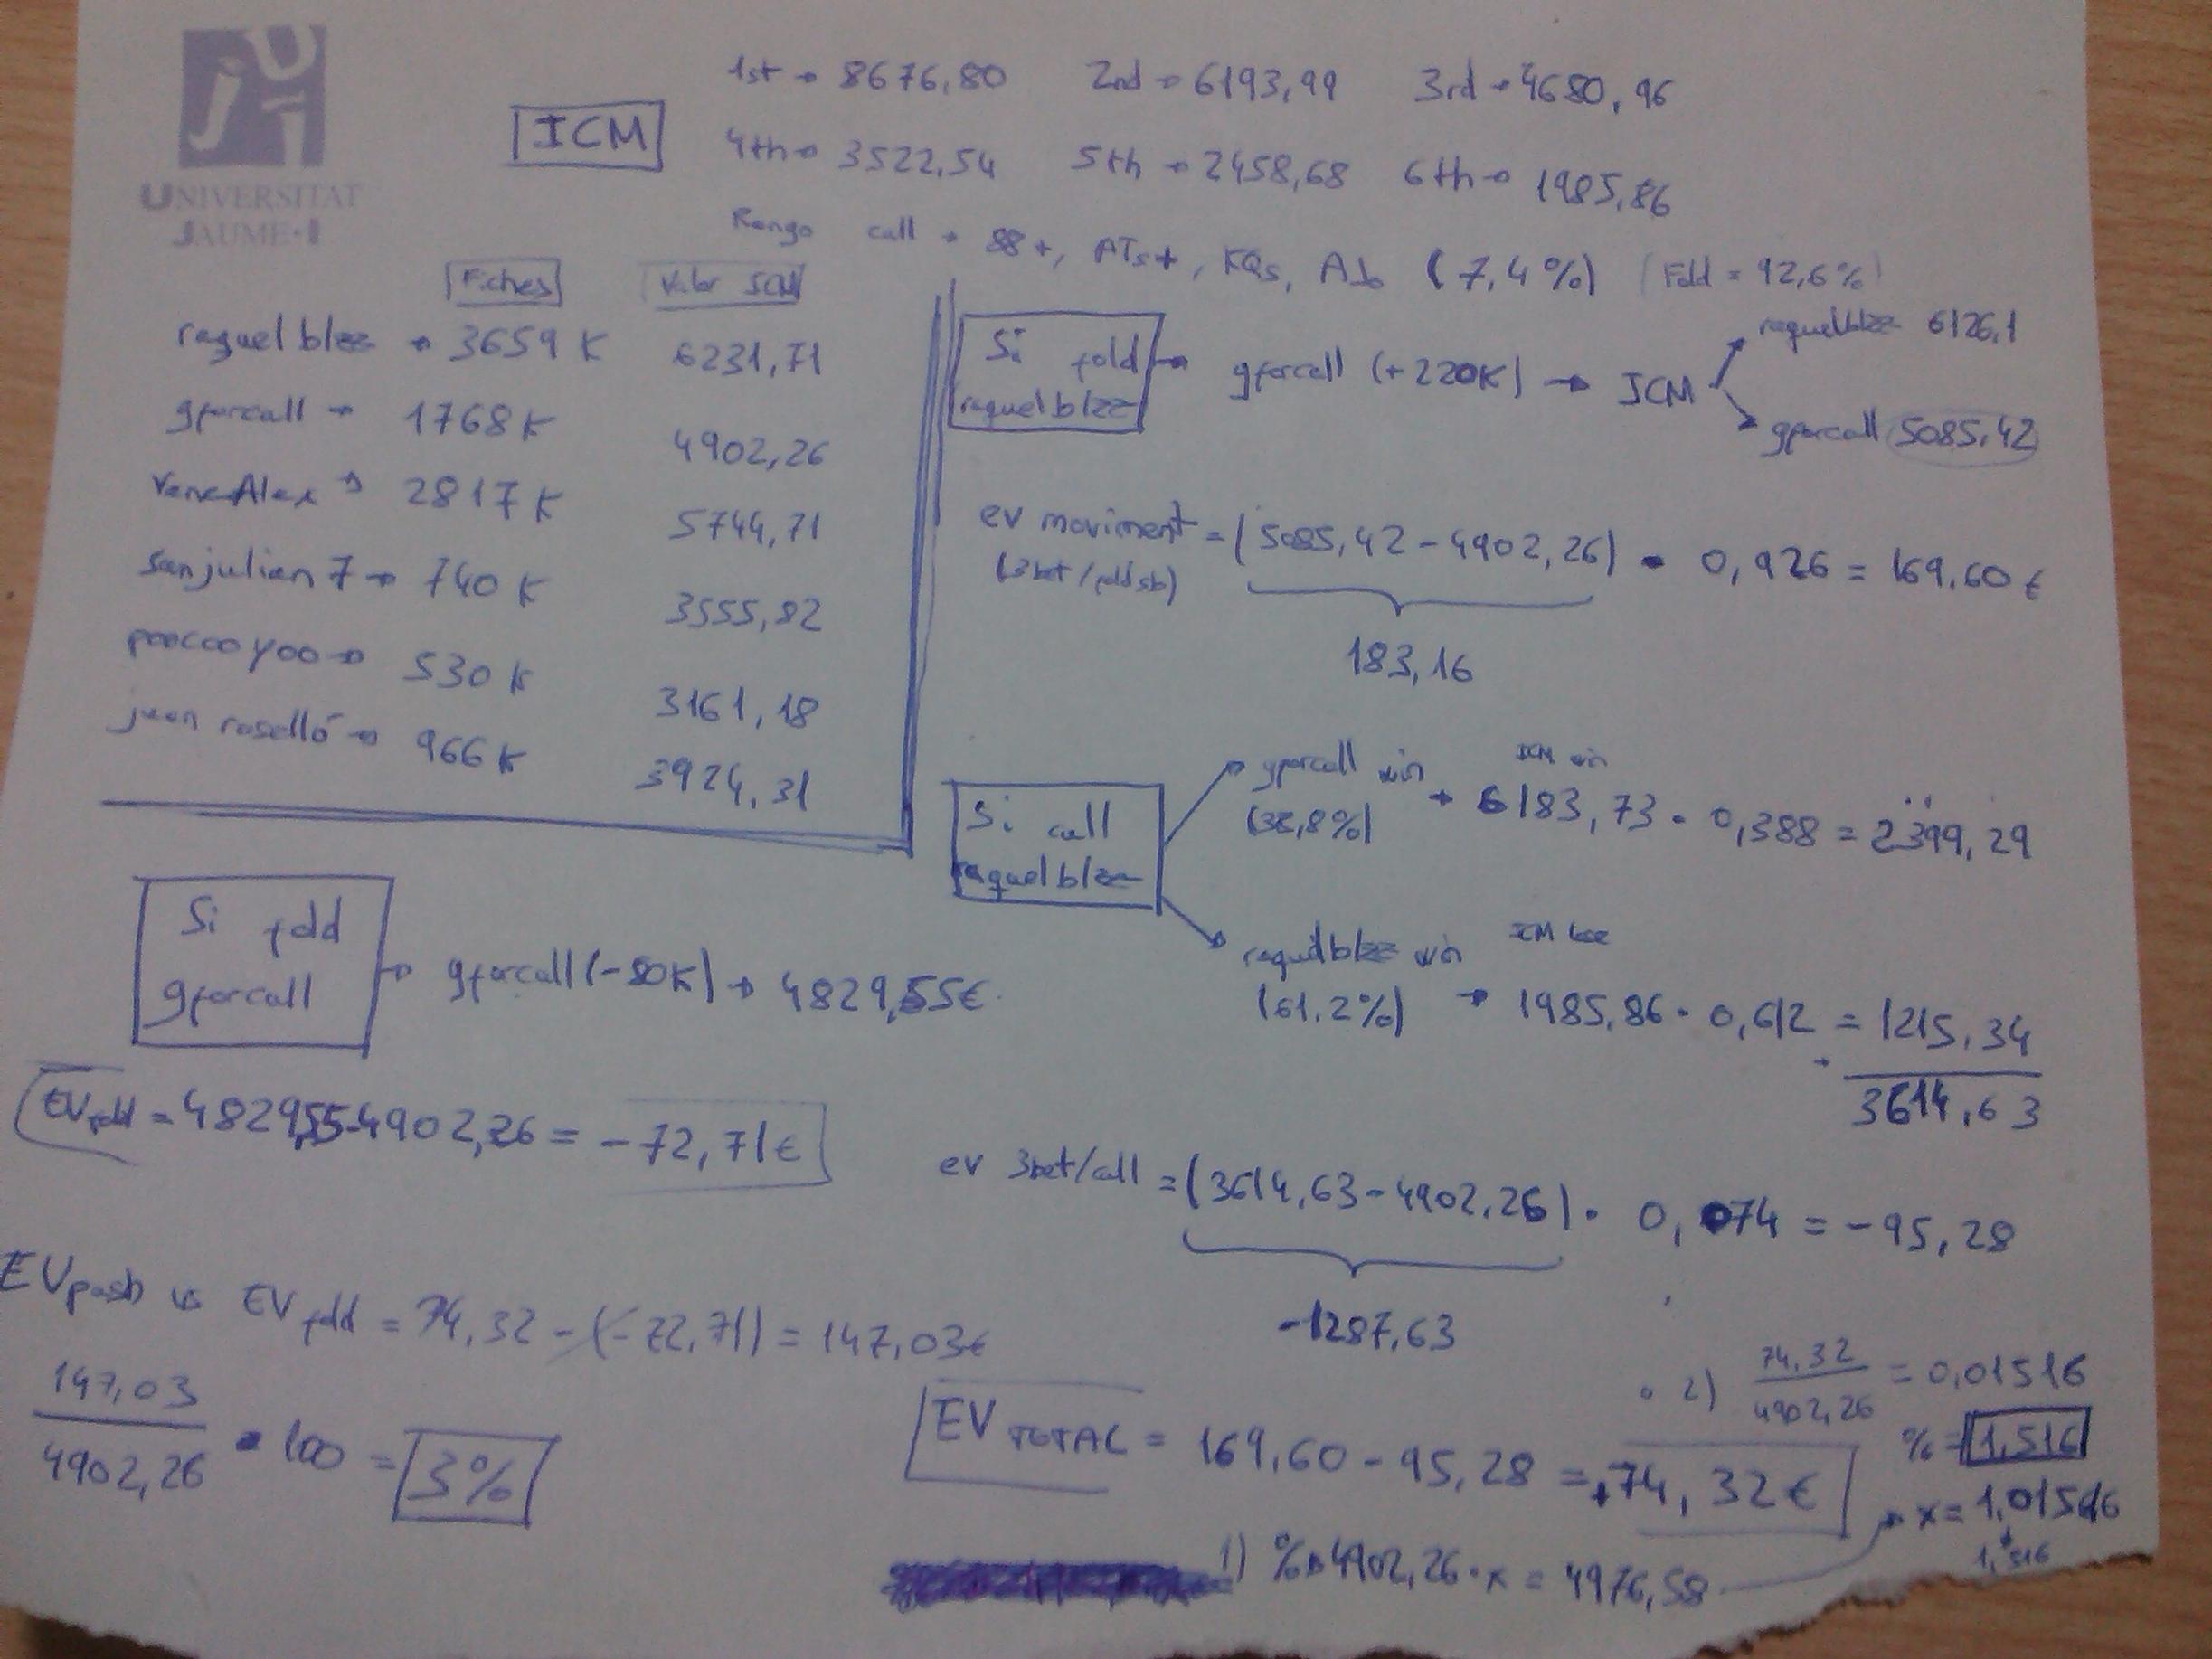 UJI
UNIVERSITAT
JAUME·I
ICM
1st → 8676,80 2nd → 6193,99 3rd → 4680,96
4th → 3522,54 5th → 2458,68 6th → 1985,86
Rango call → 88+, ATs+, KQs, AJo (7,4%) (Fold = 92,6%)
Fiches Valor ICM
raquelblzz → 3659 K 6231,71
gforcall → 1768 K 4902,26
VeneAlex → 2817 K 5744,71
sanjulian7 → 740 K 3555,82
poocooyoo → 530 K 3161,18
juan roselló → 966 K 3924,31
Si fold raquelblzz → gforcall (+220K) → ICM
raquelblzz 6126,1
gforcall 5085,42
ev moviment = (5085,42 - 4902,26) · 0,926 = 169,60 €
(3bet/fold sb)
183,16
Si call raquelblzz
gforcall win → ICM win
(38,8%) 6183,73 · 0,388 = 2399,29
raquelblzz win ICM lose
(61.2%) → 1985,86 · 0,612 = 1215,34
3614,63
Si fold gforcall → gforcall (-80K) → 4829,55€
EVfold = 4829,55-4902,26 = -72,71€
ev 3bet/call = (3614,63 - 4902,26) · 0,074 = -95,28
-1287,63
EVpush vs EVfold = 74,32 - (-72,71) = 147,03€
147,03
4902,26 · 100 = 3%
EV TOTAL = 169,60 - 95,28 = +74,32€
1) % → 4902,26 · x = 4976,58
x = 1,01516
1,516
2) 74,32
4902,26 = 0,01516
% = 1,516